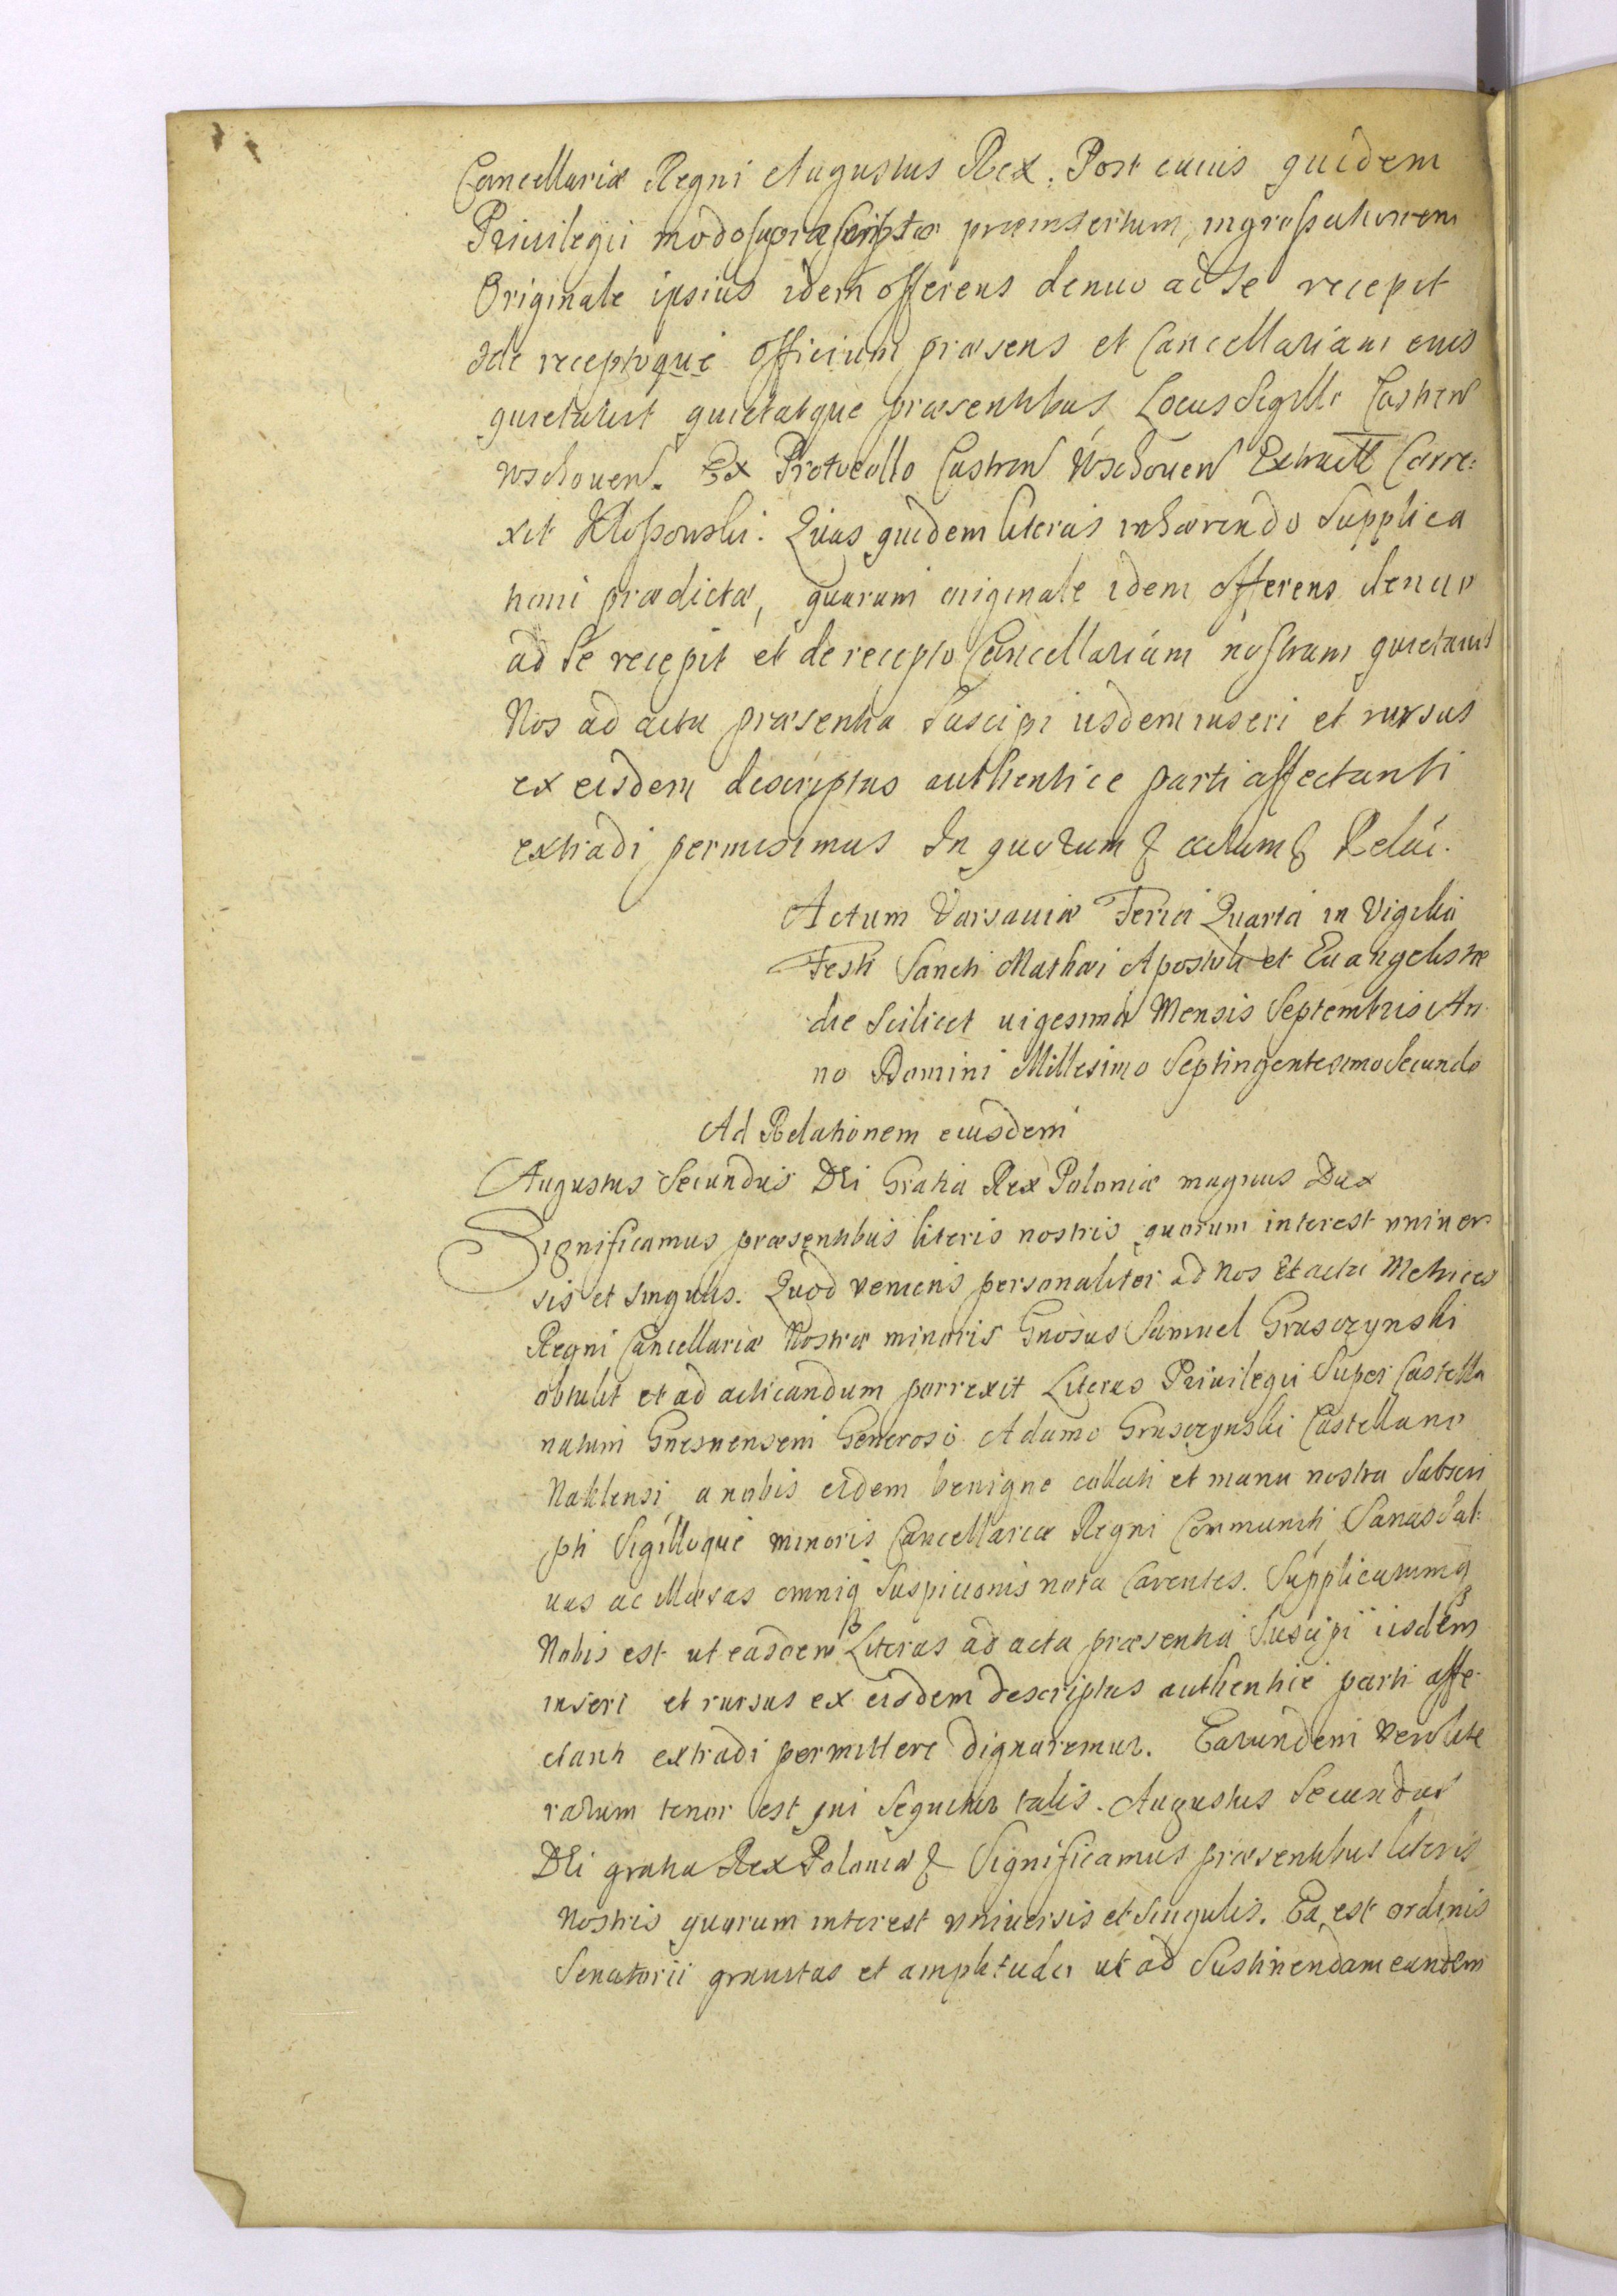 Cancellariæ Regni Augustus Rex. Post cuius quidem
Priuilegii modo supra scripto præinsertum, ingrossationem
Originale ipsius idem offerens denuo ad Se recepit
de receptoque officium præsens et Cancellariam eius
quietauit quietatque præsentibus, Locus Sigilli Castren
Wschouen. Ex Protocollo Castren Wschouen Extract Corre:
xit Kłossowski. Quas quidem literas inhærendo Supplica
tioni prædictæ, quarum originale idem offerens denuo
ad Se recepit et de recepto Cancellariam nostram quietauit
Nos ad acta præsentia Suscipi iisdem inseri et rursus
ex eisdem descriptas authentice parti affectanti
extradi permisimus In quorum & actum & Relaĩ.
Actum Varsauiæ Feria Quarta in Vigilia
Festi Sancti Mathæi Apostoli et Euangelistæ
die Scilicet uigesima Mensis Septembris An
no Domini Millesimo Septingentesimo Secundo
Ad Relationem eiusdem
Augustus Secundus Dei Gratia Rex Poloniæ magnus Dux
Significamus præsentibus literis nostris quorum interest vniuer
sis et singulis. Quod veniens personaliter ad Nos et acta Metrices
Regni Cancellariæ Nostræ minoris Gnosus Samuel Grusczynski
obtulit et ad acticandum porrexit Literas Priuilegii Super Castella
natum Gnesnensem Generoso Adamo Grusczynski Castellano
Naklensi a nobis eidem benigne collati et manu nostra Subscri
pti Sigilloque minoris Cancellariæ Regni Communiti, Sanas Sal
uas ac illæsas omniq Suspicionis nota Carentes. Supplicatumq
Nobis est ut easdem Literas ad acta præsentia Suscipi iisdem
inseri et rursus ex eisdem descriptas authentice parti affe
ctanti extradi permittere dignaremur. Earundem vero lite
rarum tenor est qui Sequitur talis. Augustus Secundus
Dei gratia Rex Poloniæ & Significamus præsentibus literis
Nostris quorum interest vniuersis et Singulis. Ea est ordinis
Senatorii grauitas et amplitudo ut ad Sustinendam eandem